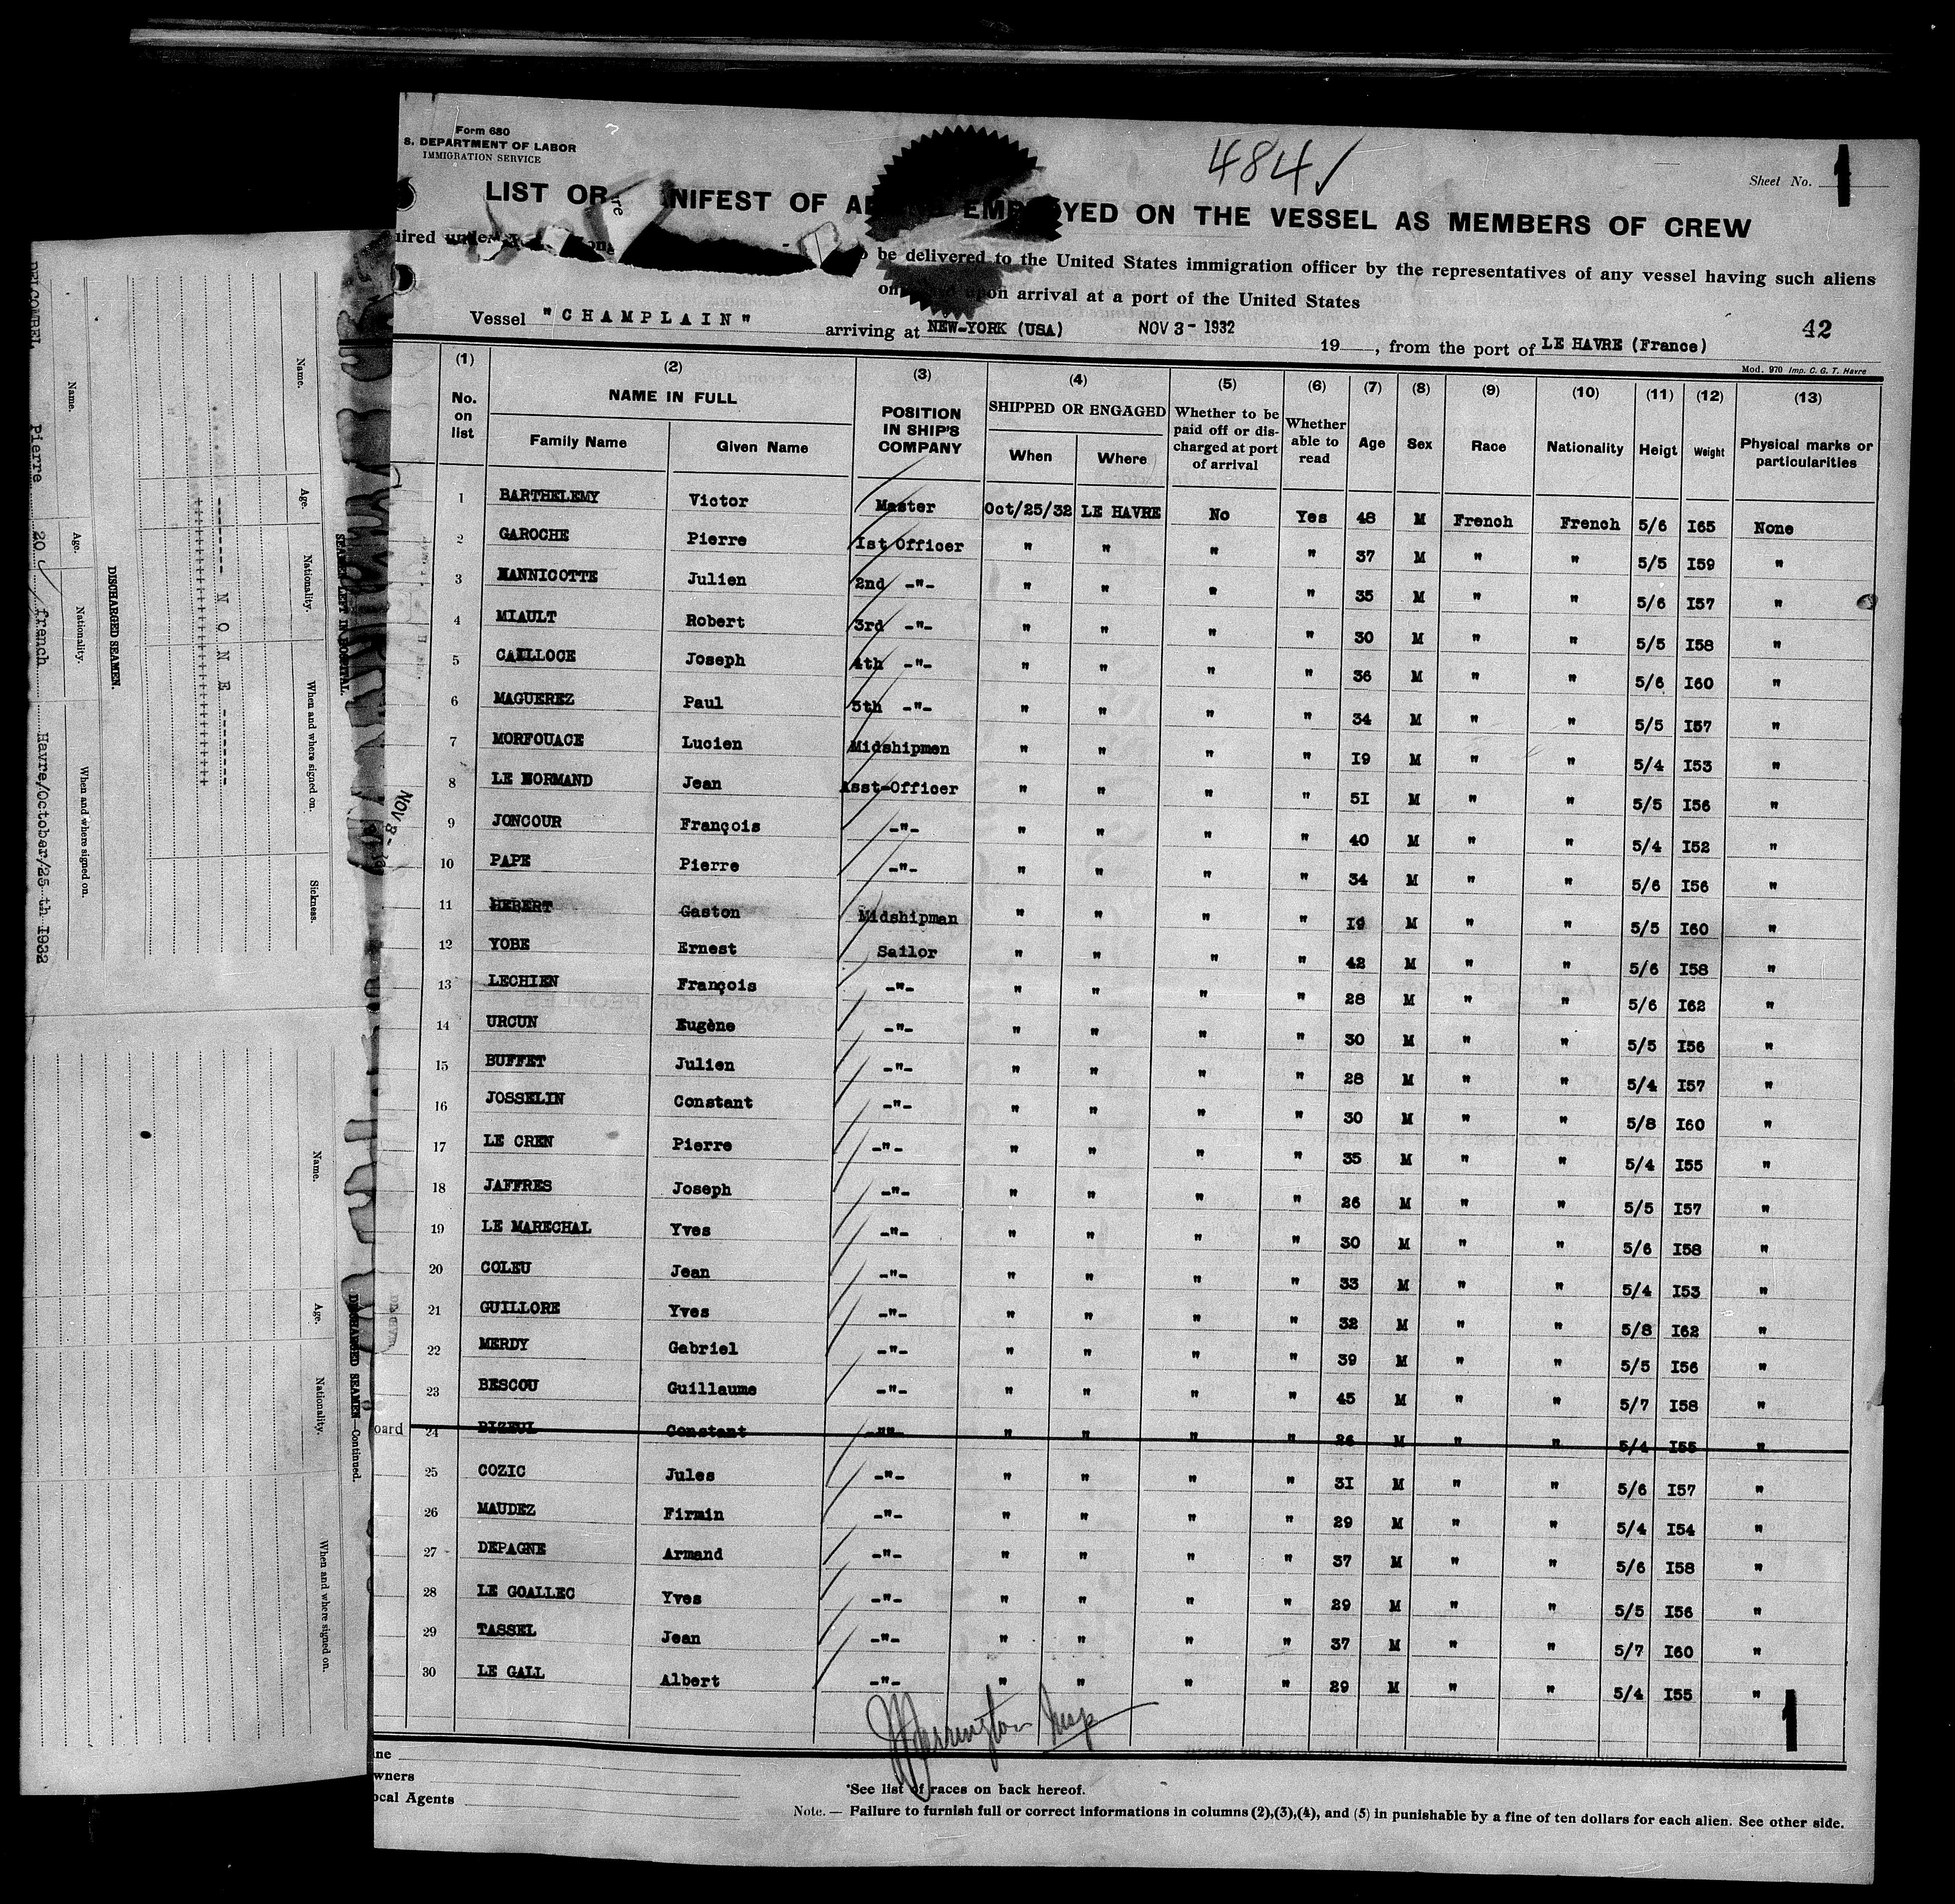 Form 680
S. DEPARTMENT OF LABOR
IMMIGRATION SERVICE
484 ✓
Sheet No. 1
LIST OR NIFEST OF AL EMP YED ON THE VESSEL AS MEMBERS OF CREW
uired under
be delivered to the United States immigration officer by the representatives of any vessel having such aliens
on upon arrival at a port of the United States
Vessel "CHAMPLAIN" arriving at NEW-YORK (USA) NOV 3 - 1932 19 , from the port of LE HAVRE (France)
42
Mod. 970 Imp. C. G. T. Havre
(1) (2) (3) (4) (5) (6) (7) (8) (9) (10) (11) (12) (13)
No. on list NAME IN FULL Family Name Given Name POSITION IN SHIP'S COMPANY SHIPPED OR ENGAGED When Where Whether to be paid off or discharged at port of arrival Whether able to read Age Sex Race Nationality Heigt Weight Physical marks or particularities
1 BARTHELEMY Victor Master Oct/25/32 LE HAVRE No Yes 48 M French French 5/6 I65 None
2 GAROCHE Pierre Ist Officer " " " " 37 M " " 5/5 I59 "
3 HANNICOTTE Julien 2nd -"- " " " " 35 M " " 5/6 I57 "
4 MIAULT Robert 3rd -"- " " " " 30 M " " 5/5 I58 "
5 CAILLOCE Joseph 4th -"- " " " " 36 M " " 5/6 I60 "
6 MAGUEREZ Paul 5th -"- " " " " 34 M " " 5/5 I57 "
7 MORFOUACE Lucien Midshipmen " " " " I9 M " " 5/4 I53 "
8 LE NORMAND Jean Asst-Officer " " " " 5I M " " 5/5 I56 "
9 JONCOUR François -"- " " " " 40 M " " 5/4 I52 "
10 PAPE Pierre -"- " " " " 34 M " " 5/6 I56 "
11 HEBERT Gaston Midshipman " " " " I9 M " " 5/5 I60 "
12 YOBE Ernest Sailor " " " " 42 M " " 5/6 I58 "
13 LECHIEN François -"- " " " " 28 M " " 5/6 I62 "
14 URCUN Eugène -"- " " " " 30 M " " 5/5 I56 "
15 BUFFET Julien -"- " " " " 28 M " " 5/4 I57 "
16 JOSSELIN Constant -"- " " " " 30 M " " 5/8 I60 "
17 LE CREN Pierre -"- " " " " 35 M " " 5/4 I55 "
18 JAFFRES Joseph -"- " " " " 26 M " " 5/5 I57 "
19 LE MARECHAL Yves -"- " " " " 30 M " " 5/6 I58 "
20 COLEU Jean -"- " " " " 33 M " " 5/4 I53 "
21 GUILLORE Yves -"- " " " " 32 M " " 5/8 I62 "
22 MERDY Gabriel -"- " " " " 39 M " " 5/5 I56 "
23 BESCOU Guillaume -"- " " " " 45 M " " 5/7 I58 "
oard 24 BIZEUL Constant -"- " " " " 26 M " " 5/4 I55 "
25 COZIC Jules -"- " " " " 3I M " " 5/6 I57 "
26 MAUDEZ Firmin -"- " " " " 29 M " " 5/4 I54 "
27 DEPAGNE Armand -"- " " " " 37 M " " 5/6 I58 "
28 LE GOALLEC Yves -"- " " " " 29 M " " 5/5 I56 "
29 TASSEL Jean -"- " " " " 37 M " " 5/7 I60 "
30 LE GALL Albert -"- " " " " 29 M " " 5/4 I55 "
1
ine
wners
ocal Agents
*See list of races on back hereof.
Note. — Failure to furnish full or correct informations in columns (2),(3),(4), and (5) in punishable by a fine of ten dollars for each alien. See other side.
NOV 3 - 19
SEAMEN LEFT IN HOSPITAL.
Name. Age. Nationality. When and where signed on. Sickness.
------- N O N E -------
DISCHARGED SEAMEN.
Name. Age. Nationality. When and where signed on.
DELCOMBEL Pierre 20 french Havre/October/25 th I932
DISCHARGED SEAMEN—Continued.
Name. Age. Nationality. When and where signed on.